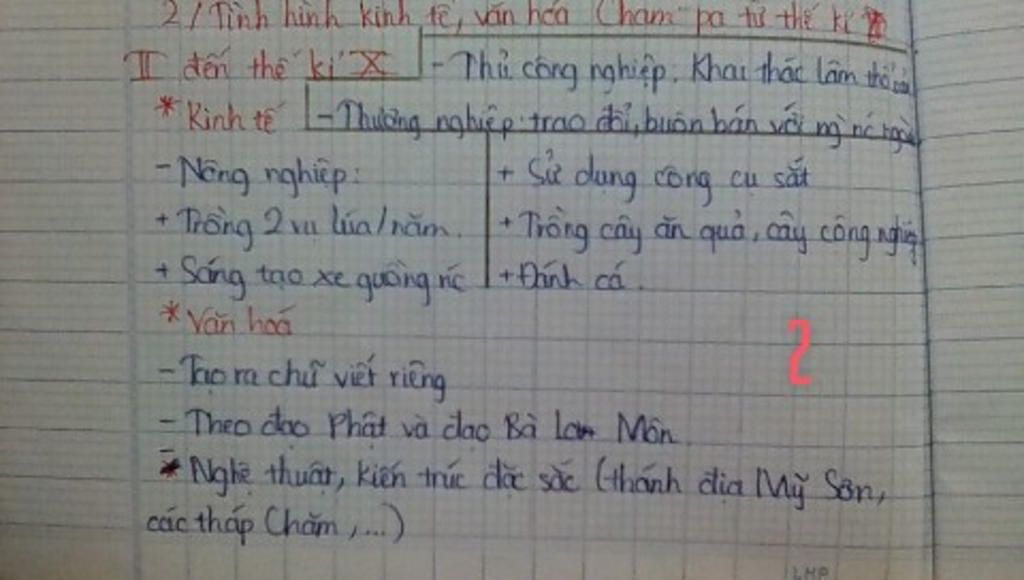 2/Tình hình kinh tế, văn hóa Cham-pa từ thế kỉ
II đến thế kỉ X
- Thủ công nghiệp: Khai thác lâm thổ
* Kinh tế
- Thương nghiệp: trao đổi, buôn bán với ng' nc ngoài
- Nông nghiệp:
+ Trồng 2 vụ lúa/năm.
+ Sáng tạo xe guồng nc
+ Sử dụng công cụ sắt
+ Trồng cây ăn quả, cây công nghiệp
+ Đánh cá.
* Văn hoá
- Tạo ra chữ viết riêng
- Theo đạo Phật và đạo Bà La Môn
- Nghệ thuật, kiến trúc đặc sắc (thánh địa Mỹ Sơn,
các tháp Chăm,...)
2